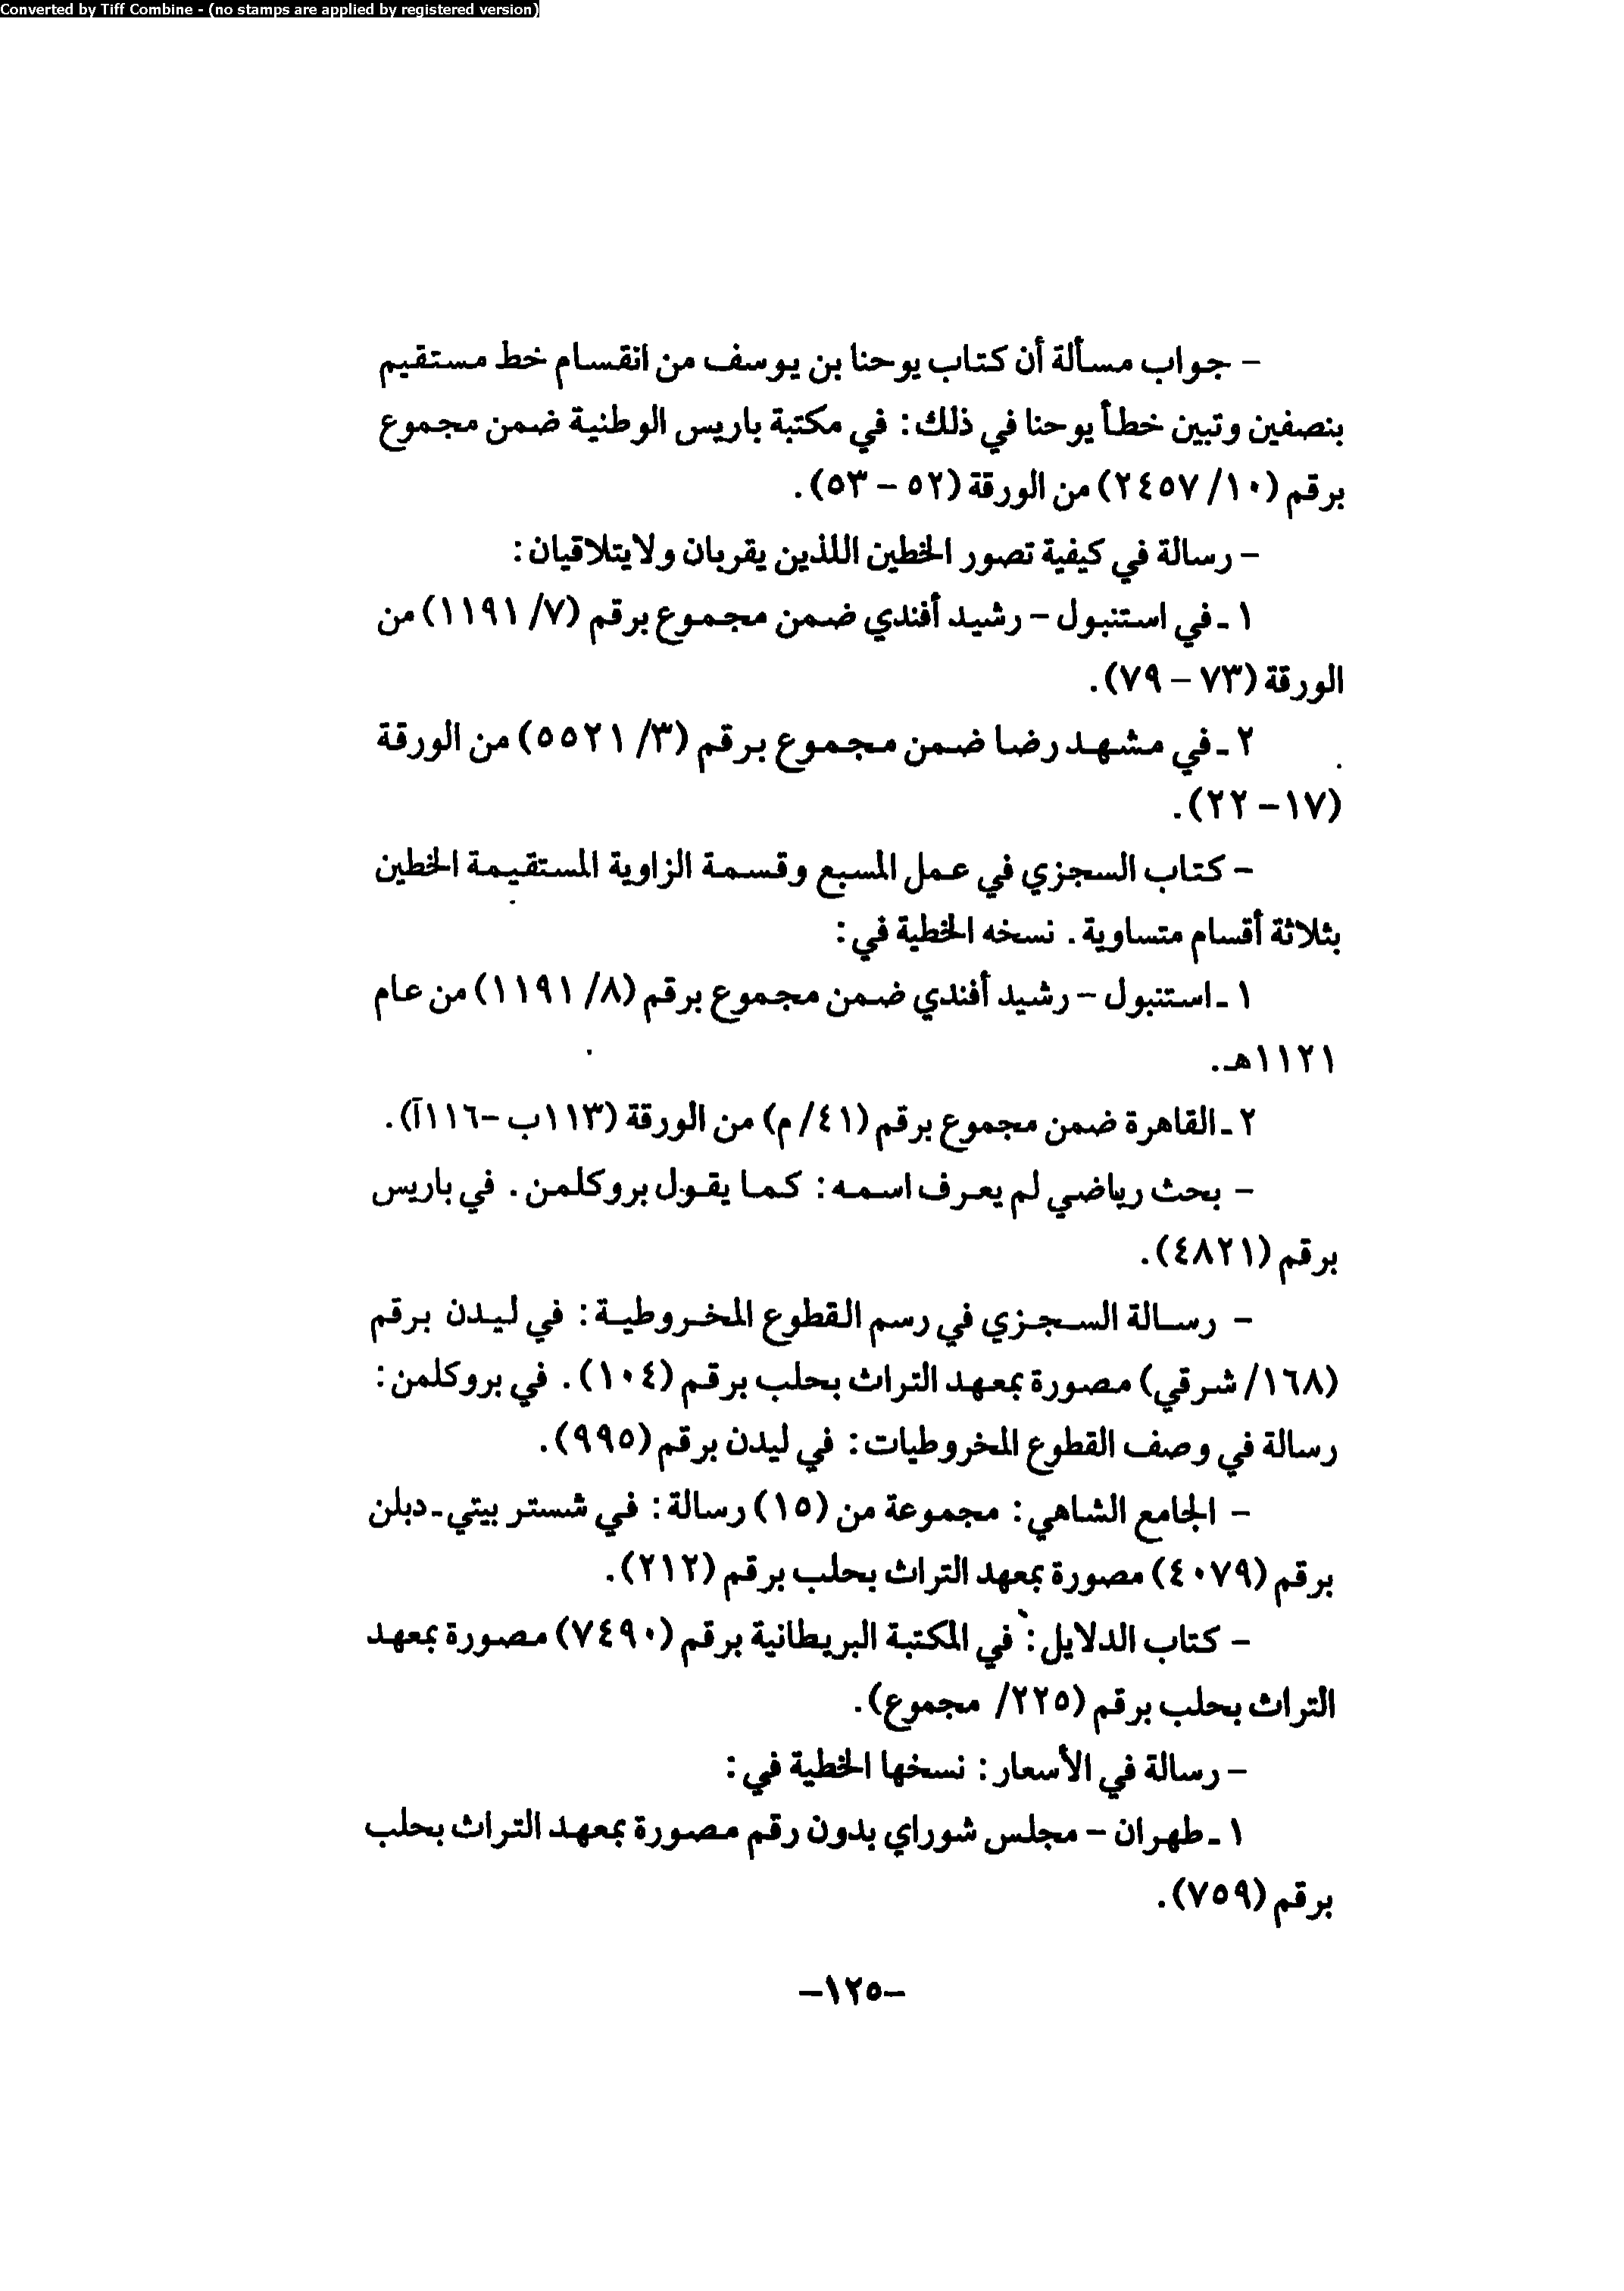 Converted by Tiff Combine - (no stamps are applied by registered version)
- جواب مسألة أن كتاب يوحنا بن يوسف من انقسام خط مستقيم
بنصفين وتبين خطأ يوحنا في ذلك: في مكتبة باريس الوطنية ضمن مجموع
برقم (١٠/ ٢٤٥٧) من الورقة (٥٢ - ٥٣).
- رسالة في كيفية تصور الخطين اللذين يقربان ولايتلاقيان:
١ ـ في استنبول - رشيد أفندي ضمن مجموع برقم (٧/ ١١٩١) من
الورقة (٧٣ - ٧٩).
٢ ـ في مشهد رضا ضمن مجموع برقم (٣/ ٥٥٢١) من الورقة
(١٧- ٢٢).
- كتاب السجزي في عمل المسبع وقسمة الزاوية المستقيمة الخطين
بثلاثة أقسام متساوية. نسخه الخطية في:
١ ـ استنبول - رشيد أفندي ضمن مجموع برقم (٨/ ١١٩١) من عام
١١٢١هـ.
٢ ـ القاهرة ضمن مجموع برقم (٤١/ م) من الورقة (١١٣ب -١١٦آ).
- بحث رياضي لم يعرف اسمه: كما يقول بروكلمن. في باريس
برقم (٤٨٢١).
- رسالة السجزي في رسم القطوع المخروطية: في ليدن برقم
(١٦٨/ شرقي) مصورة بمعهد التراث بحلب برقم (١٠٤). في بروكلمن:
رسالة في وصف القطوع المخروطيات: في ليدن برقم (٩٩٥).
- الجامع الشاهي: مجموعة من (١٥) رسالة: في شستر بيتي ـ دبلن
برقم (٤٠٧٩) مصورة بمعهد التراث بحلب برقم (٢١٢).
- كتاب الدلايل: في المكتبة البريطانية برقم (٧٤٩٠) مصورة بمعهد
التراث بحلب برقم (٢٢٥/ مجموع).
- رسالة في الأسعار: نسخها الخطية في:
١ ـ طهران - مجلس شوراي بدون رقم مصورة بمعهد التراث بحلب
برقم (٧٥٩).
-١٢٥-